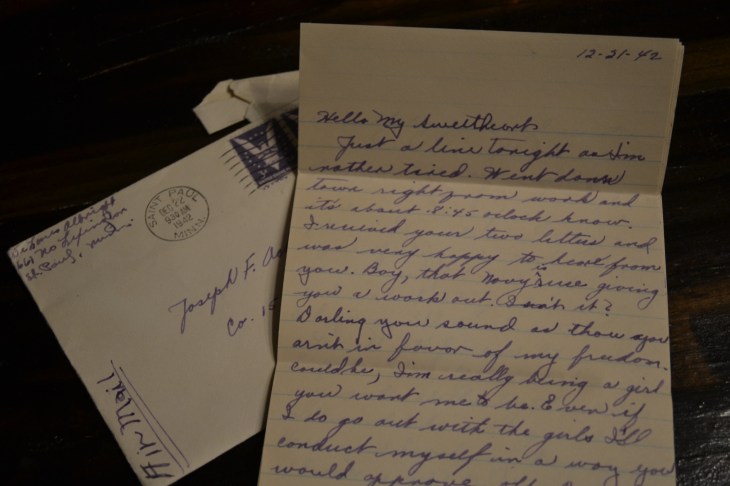 12-21-42
Hello My Sweetheart
Just a line tonight as I'm
rather tired. Went down
town right from work and
it's about 8:45 oclock know.
I recived your two letters and
was very happy to hear from
you. Boy, that Navy is use giving
you a work out. Isn't it?
Darling you sound as thou you
arn't in favor of my fredom.
could be, I'm really being a girl
you want me to be. Even if
I do go out with the girls I'll
conduct myself in a way you
would approve of
SAINT PAUL
DEC 22
1942
MINN.
661 No Lexington
St Paul, Minn.
Joseph F.
Co. 15
Air Mail